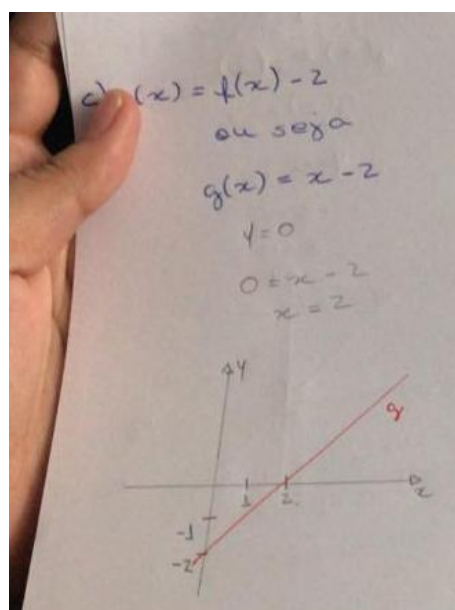 c) (x) = f(x) - 2
ou seja
g(x) = x - 2
y = 0
0 = x - 2
x = 2
y
g
1 2
x
-1
-2